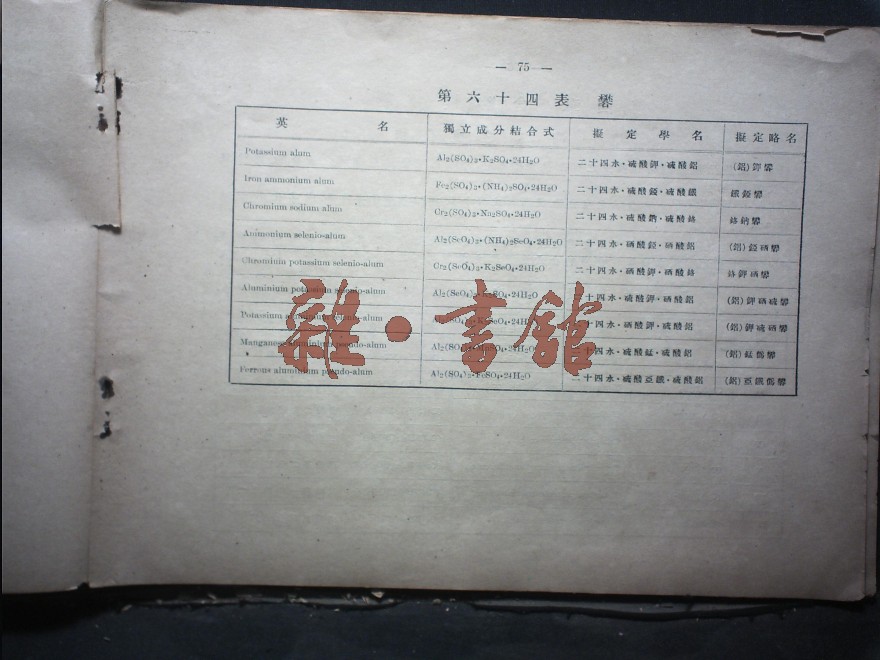 — 75 —
第六十四表 礬
英名 獨立成分結合式 擬定學名 擬定略名
Potassium alum Al₂(SO₄)₃•K₂SO₄•24H₂O 二十四水•硫酸鉀•硫酸鋁 (鋁)鉀礬
Iron ammonium alum Fe₂(SO₄)₃•(NH₄)₂SO₄•24H₂O 二十四水•硫酸銨•硫酸鐵 鐵銨礬
Chromium sodium alum Cr₂(SO₄)₃•Na₂SO₄•24H₂O 二十四水•硫酸鈉•硫酸鉻 鉻鈉礬
Ammonium selenio-alum Al₂(SeO₄)₃•(NH₄)₂SeO₄•24H₂O 二十四水•硒酸銨•硒酸鋁 (鋁)銨硒礬
Chromium potassium selenio-alum Cr₂(SeO₄)₃•K₂SeO₄•24H₂O 二十四水•硒酸鉀•硒酸鉻 鉻鉀硒礬
Aluminium potassium selenio-alum Al₂(SeO₄)₃ 24H₂O 十四水•硫酸鉀•硒酸鋁 (鋁)鉀硒硫礬
Potassium 24H₂O 十四水•硒酸鉀•硫酸鋁 (鋁)鉀硫硒礬
Manganese aluminium pseudo-alum Al₂(SO₄)₃ 24H₂O 二十四水•硫酸錳•硫酸鋁 (鋁)錳僞礬
Ferrous aluminium pseudo-alum Al₂(SO₄)₃•FeSO₄•24H₂O 二十四水•硫酸亞鐵•硫酸鋁 (鋁)亞鐵僞礬
雜•書館